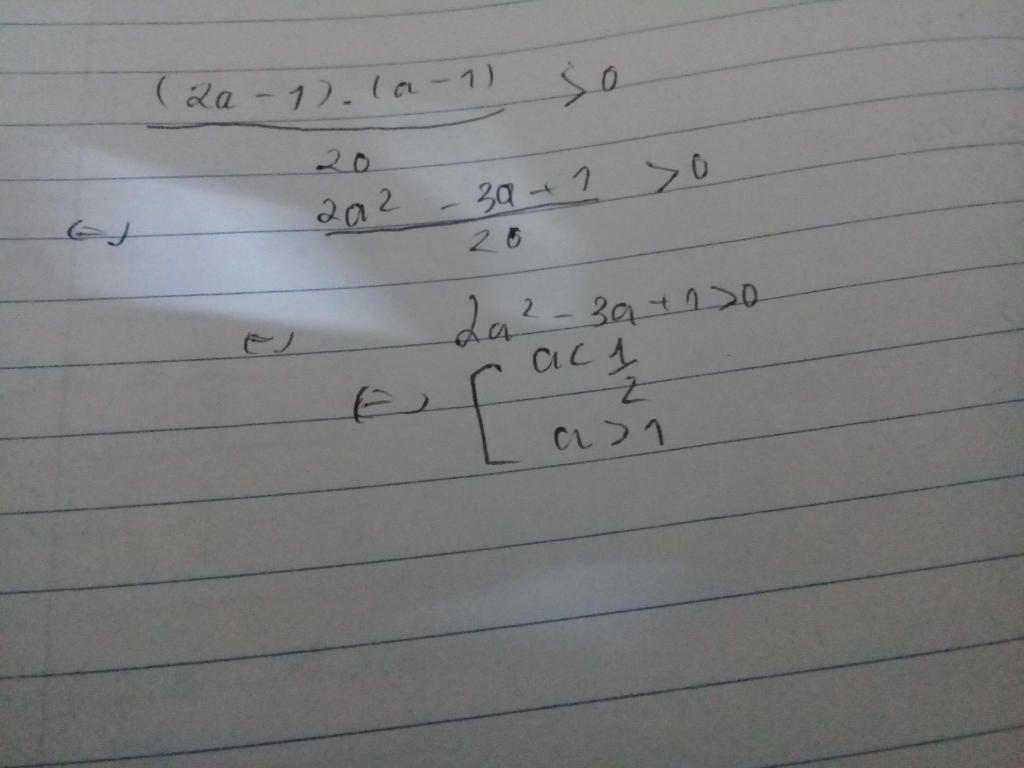 (2a - 1) . (a - 1) > 0
20
⇔ 2a² - 3a + 1 > 0
20
⇔ 2a² - 3a + 1 > 0
⇔ [ a < 1/2
a > 1